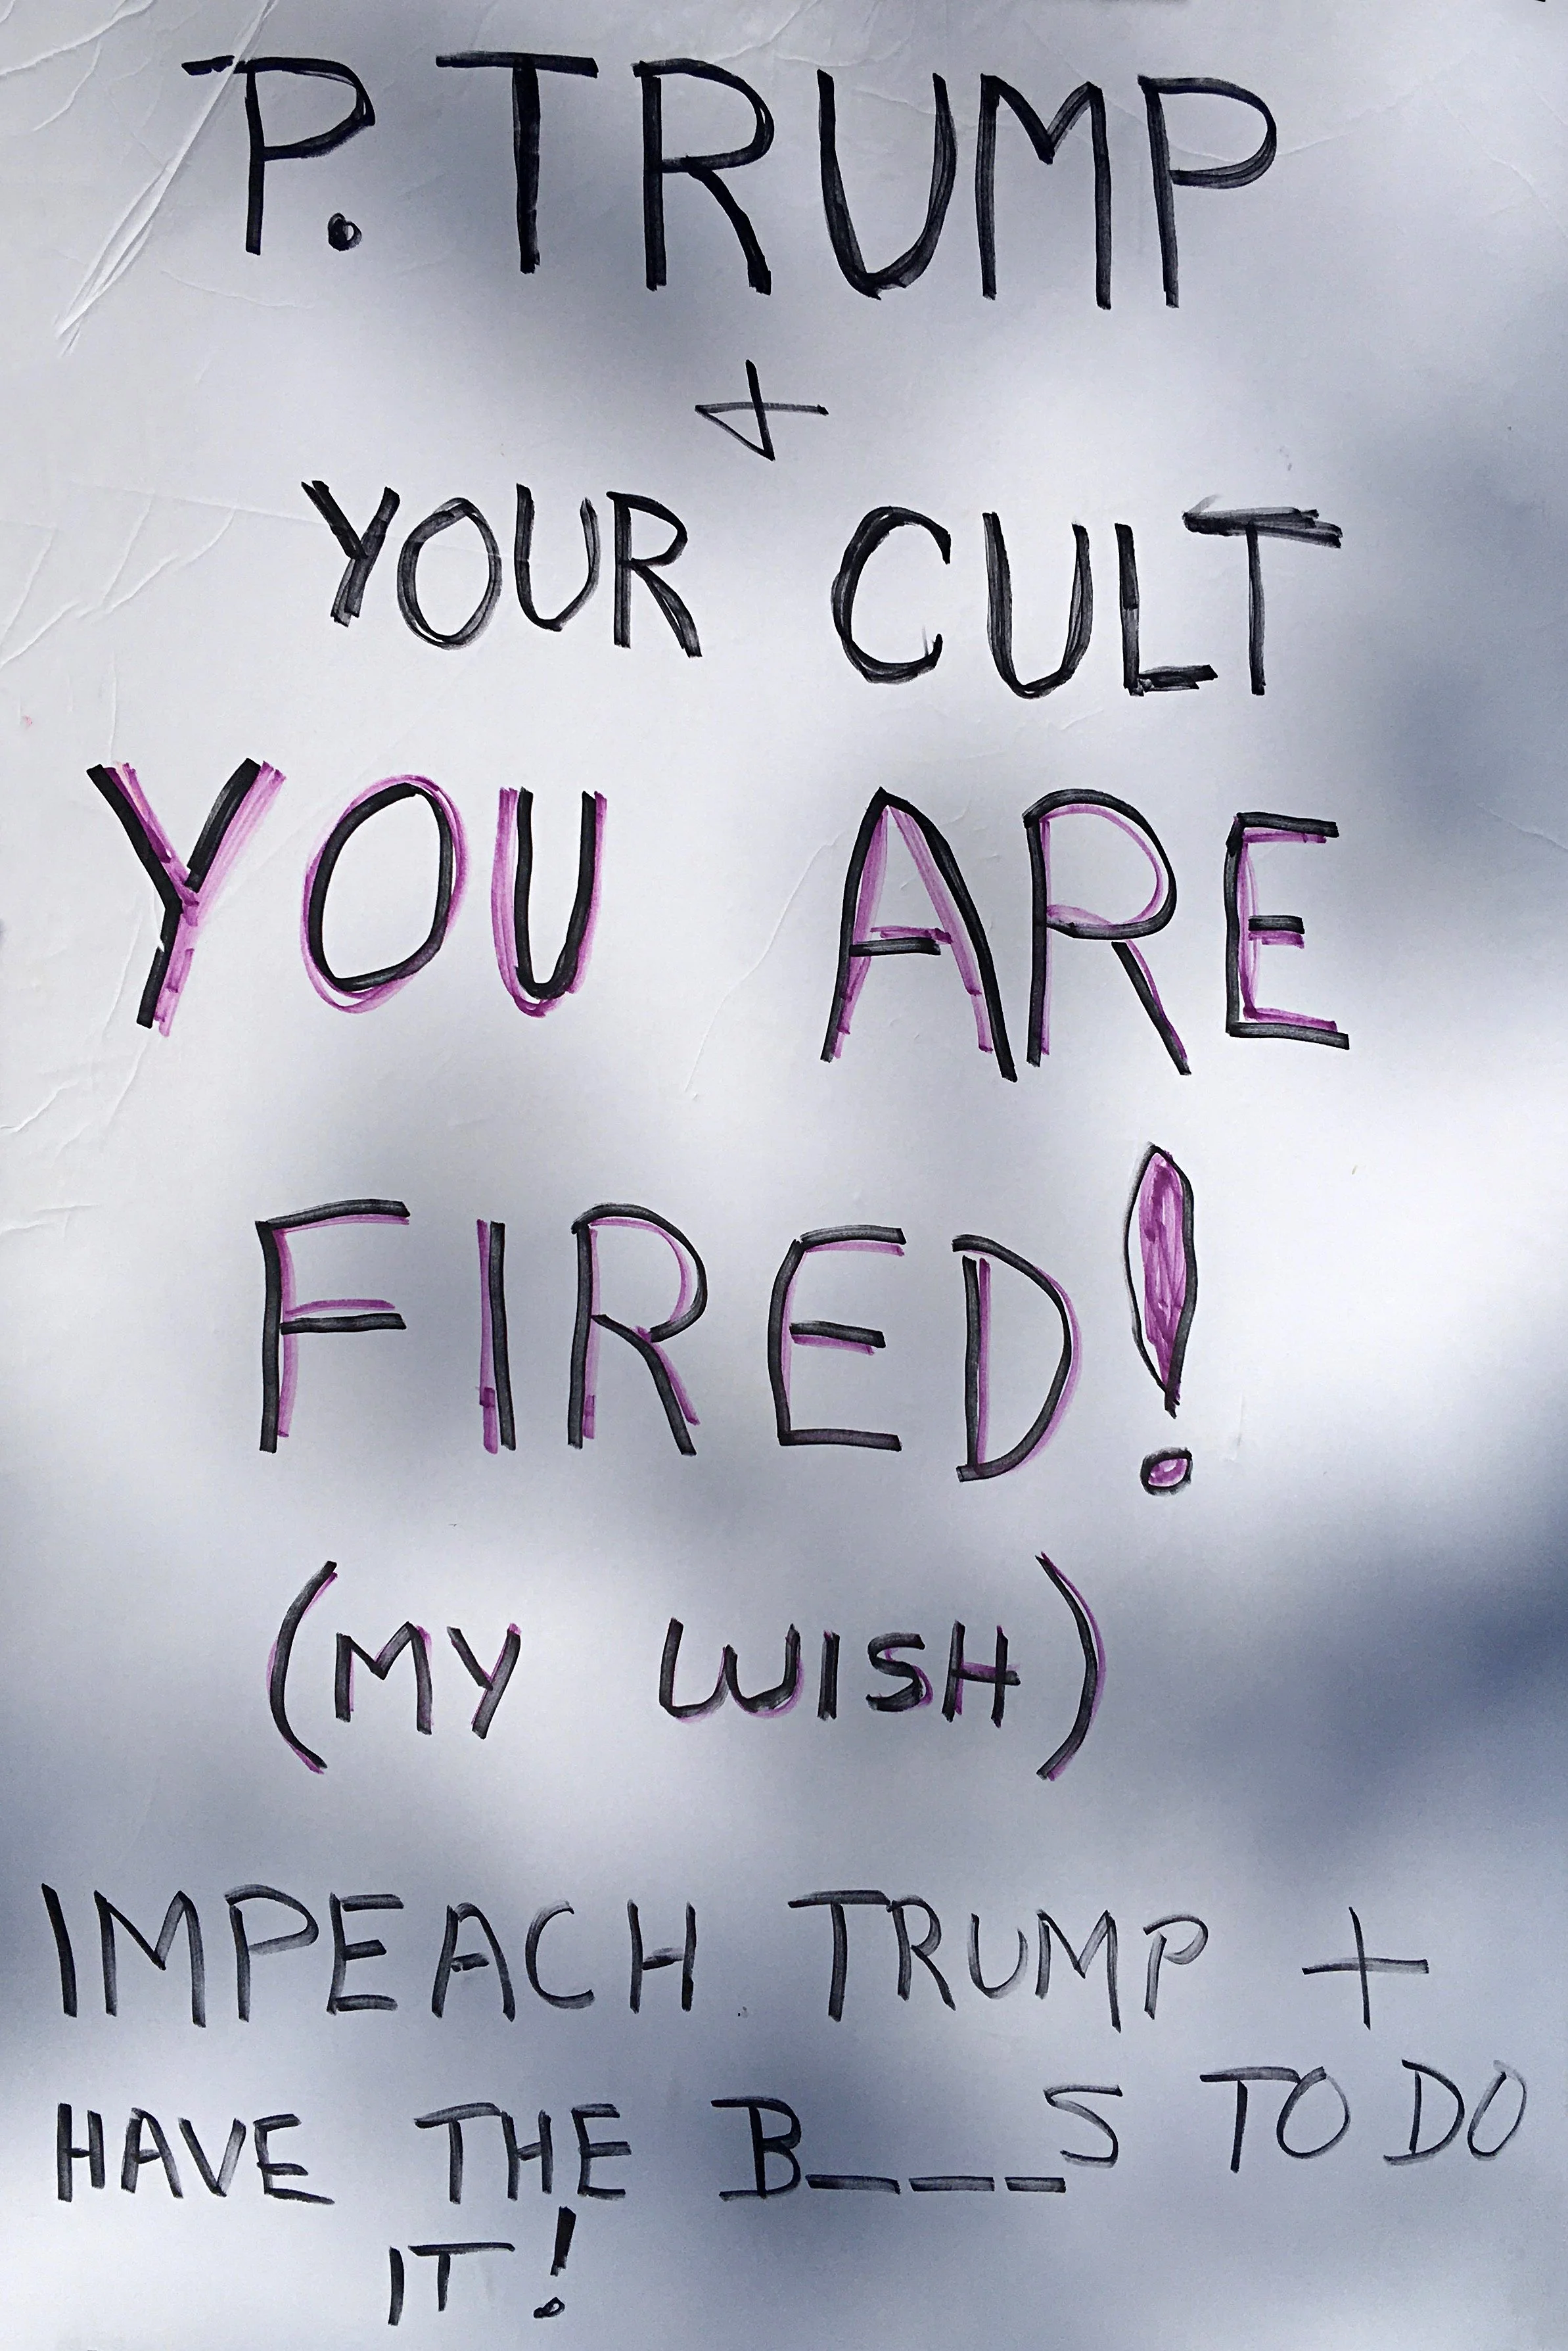 P. TRUMP
+
YOUR CULT
YOU ARE
FIRED!
(MY WISH)
IMPEACH TRUMP +
HAVE THE B___S TO DO
IT!